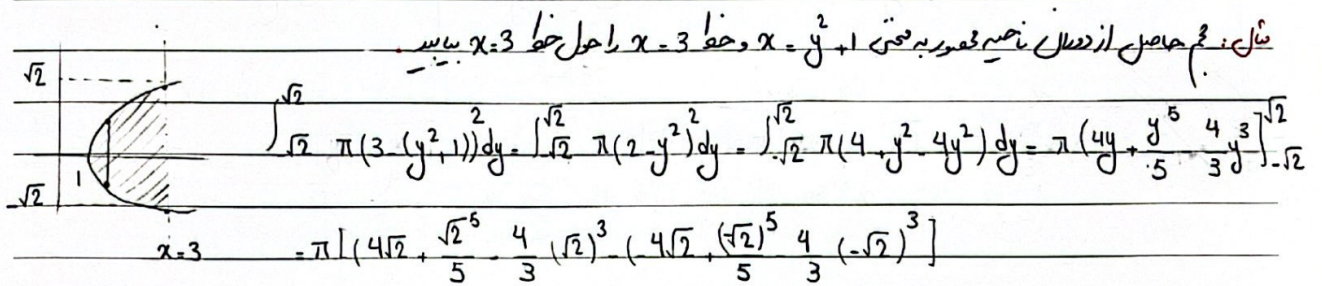 مثال: حجم حاصل از دوران ناحیه محصور به منحنی x = y² + 1 و خط x = 3 را حول خط x = 3 بیابید.
√2
∫_{-√2}^{√2} π(3-(y²+1))² dy = ∫_{-√2}^{√2} π(2-y²)² dy = ∫_{-√2}^{√2} π(4+y²-4y²) dy = π(4y + y⁵/5 - 4/3 y³]_{-√2}^{√2}
1
-√2
x=3
= π[(4√2 + √2⁵/5 - 4/3 (√2)³ - (-4√2 + (-√2)⁵/5 - 4/3 (-√2)³]